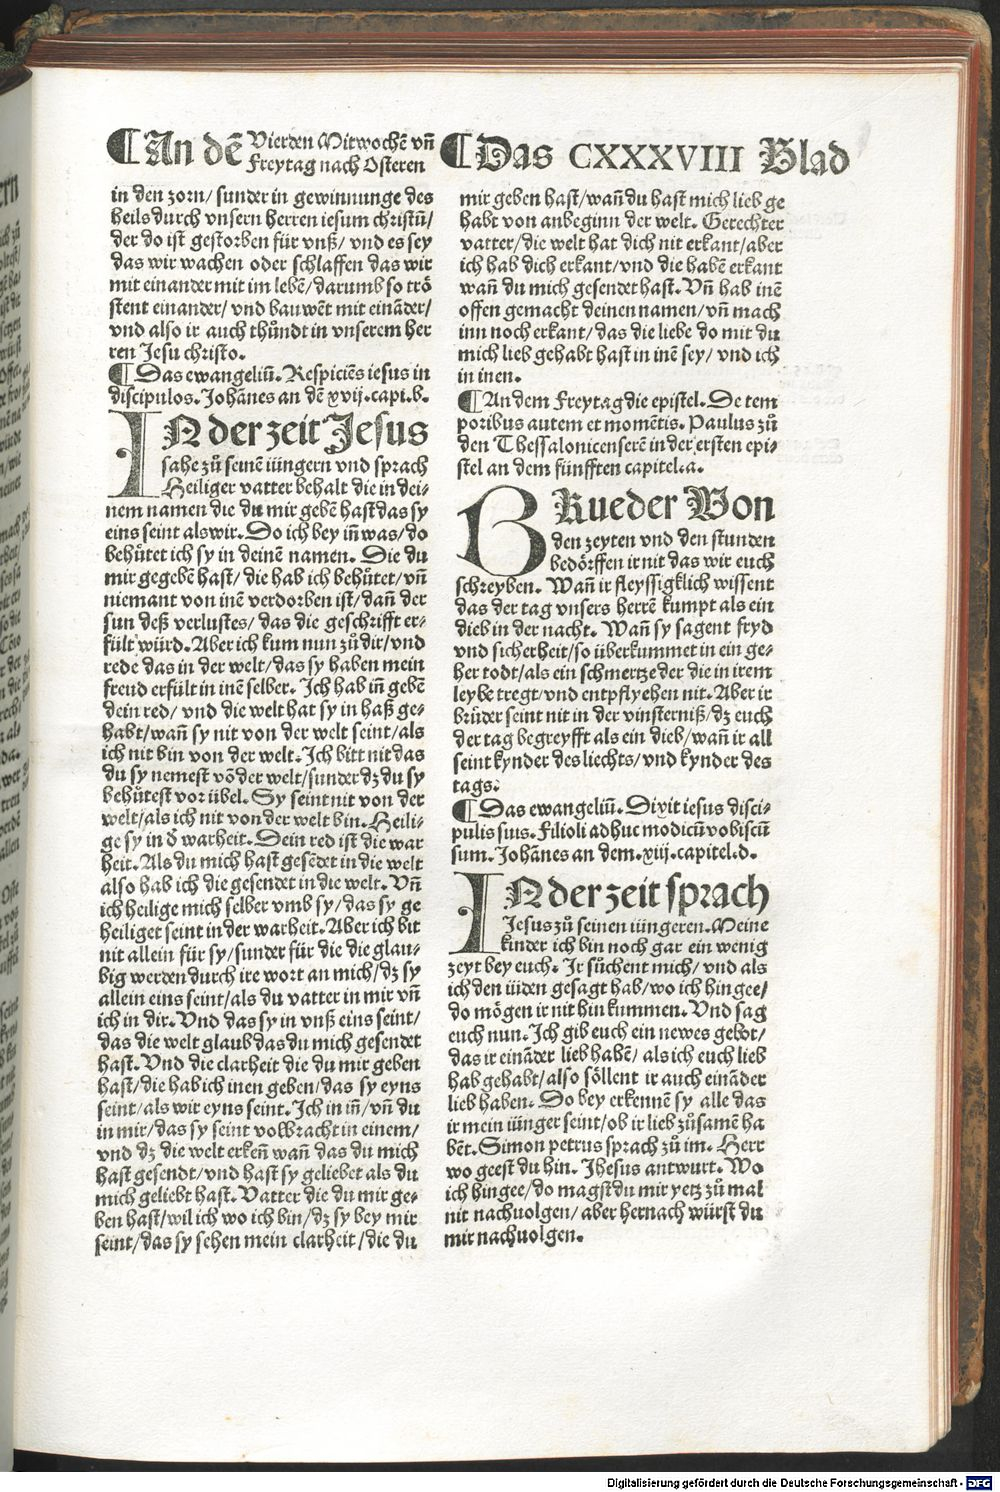 ¶An dē Vierden Mitwochē vn̄
Freytag nach Osteren
¶Das CXXXVIII Blad
in den zorn/ sunder in gewinnunge des
heils durch vnsern herren iesum christū/
der do ist gestorben für vnß/ vnd es sey
das wir wachen oder schlaffen das wir
mit einander mit im lebē/ darumb so trö
stent einander/ vnd bauwēt mit eināder/
vnd also ir auch thůndt in vnserem her
ren Jesu christo.
¶Das ewangeliū. Respiciēs iesus in
discipulos. Johānes an dē xvij. capi. b.
IN der zeit Jesus
sahe zů seinē iüngern vnd sprach
Heiliger vatter behalt die in dei⸗
nem namen die du mir gebē hast das sy
eins seint als wir. Do ich bey in̄ was/ do
behůtet ich sy in deinē namen. Die du
mir gegebē hast/ die hab ich behůtet/ vn̄
niemant von inē verdorben ist/ dan̄ der
sun deß verlustes/ das die geschrifft er⸗
fült würd. Aber ich kum nun zů dir/ vnd
rede das in der welt/ das sy haben mein
freud erfült in inē selber. Ich hab in̄ gebē
dein red/ vnd die welt hat sy in haß ge⸗
habt/ wan̄ sy nit von der welt seint/ als
ich nit bin von der welt. Ich bitt nit das
du sy nemest vō der welt/ sunder dz du sy
behůtest vor übel. Sy seint nit von der
welt/ als ich nit von der welt bin. Heili⸗
ge sy in d̄ warheit. Dein red ist die war
heit. Als du mich hast gesēdet in die welt
also hab ich die gesendet in die welt. Vn̄
ich heilige mich selber vmb sy/ das sy ge
heiliget seint in der warheit. Aber ich bit
nit allein für sy/ sunder für die die glau⸗
big werden durch ire wort an mich/ dz sy
allein eins seint/ als du vatter in mir vn̄
ich in dir. Vnd das sy in vnß eins seint/
das die welt glaub das du mich gesendet
hast. Vnd die clarheit die du mir geben
hast/ die hab ich inen geben/ das sy eyns
seint/ als wir eyns seint. Ich in in̄/ vn̄ du
in mir/ das sy seint volbracht in einem/
vnd dz die welt erken̄ wan̄ das du mich
hast gesendt/ vnd hast sy geliebet als du
mich geliebt hast. Vatter die du mir ge⸗
ben hast/ wil ich wo ich bin/ dz sy bey mir
seint/ das sy sehen mein clarheit/ die du
mir geben hast/ wan̄ du hast mich lieb ge
habt von anbeginn der welt. Gerechter
vatter/ die welt hat dich nit erkant/ aber
ich hab dich erkant/ vnd die habē erkant
wan̄ du mich gesendet hast. Vn̄ hab inē
offen gemacht deinen namen/ vn̄ mach
inn noch erkant/ das die liebe do mit du
mich lieb gehabt hast in inē sey/ vnd ich
in inen.
¶An dem Freytag die epistel. De tem
poribus autem et momētis. Paulus zů
den Thessalonicenserē in der ersten epi⸗
stel an dem fünfften capitel. a.
BRueder Von
den zeyten vnd den stunden
bedörffen ir nit das wir euch
schreyben. Wan̄ ir fleyssigklich wissent
das der tag vnsers herrē kumpt als ein
dieb in der nacht. Wan̄ sy sagent fryd
vnd sicherheit/ so überkummet in ein ge⸗
her todt/ als ein schmertze der die in irem
leybe tregt/ vnd entpflyehen nit. Aber ir
brüder seint nit in der vinsterniß/ dz euch
der tag begreyfft als ein dieb/ wan̄ ir all
seint kynder des liechts/ vnd kynder des
tags.
¶Das ewangeliū. Dixit iesus disci⸗
pulis suis. Filioli adhuc modicū vobiscū
sum. Johānes an dem. xiij. capitel. d.
IN der zeit sprach
Jesus zů seinen iüngeren. Meine
kinder ich bin noch gar ein wenig
zeyt bey euch. Ir sůchent mich/ vnd als
ich den iüden gesagt hab/ wo ich hin gee/
do mögen ir nit hin kummen. Vnd sag
euch nun. Ich gib euch ein newes gebot/
das ir eināder lieb habē/ als ich euch lieb
hab gehabt/ also söllent ir auch eināder
lieb haben. Do bey erkennē sy alle das
ir mein iünger seint/ ob ir lieb zůsamē ha
bēt. Simon petrus sprach zů im. Herr
wo geest du hin. Jhesus antwurt. Wo
ich hin gee/ do magst du mir yetz zů mal
nit nachuolgen/ aber hernach würst du
mir nachuolgen.
Digitalisierung gefördert durch die Deutsche Forschungsgemeinschaft - DFG